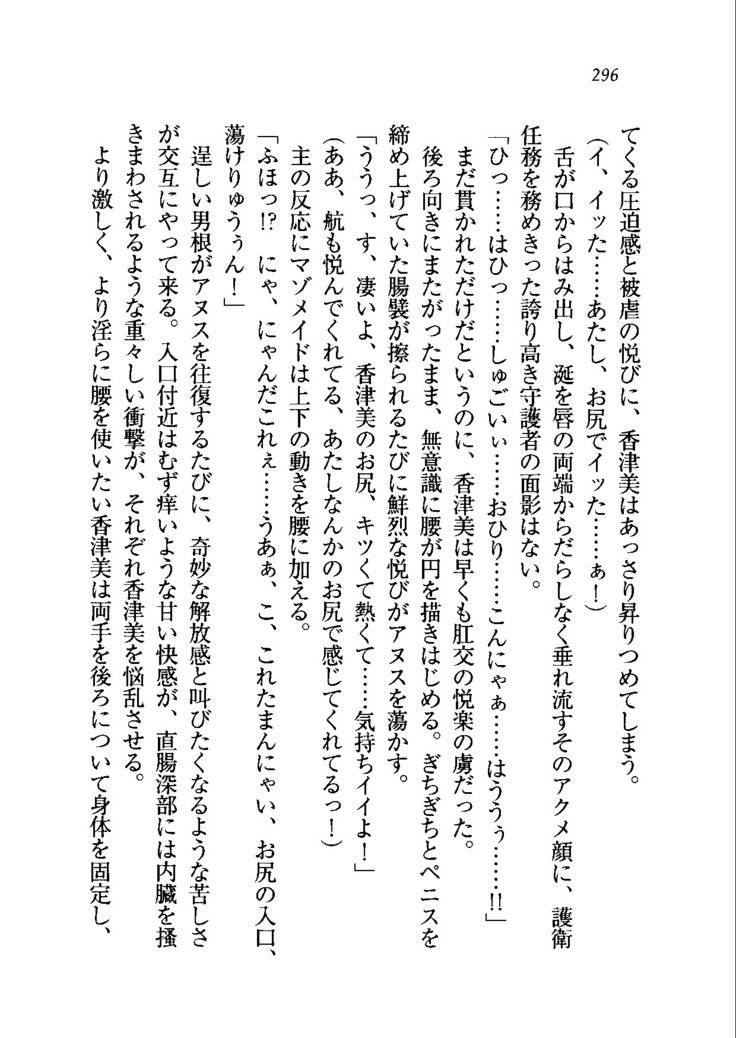 296
てくる圧迫感と被虐の悦びに、香津美はあっさり昇りつめてしまう。
(イ、イッた……あたし、お尻でイッた……ぁ！)
舌が口からはみ出し、涎を唇の両端からだらしなく垂れ流すそのアクメ顔に、護衛
任務を務めきった誇り高き守護者の面影はない。
「ひっ……はひっ……しゅごいぃ……おひり……こんにゃぁ……はううぅ……!!」
まだ貫かれただけだというのに、香津美は早くも肛交の悦楽の虜だった。
後ろ向きにまたがったまま、無意識に腰が円を描きはじめる。ぎちぎちとペニスを
締め上げていた腸襞が擦られるたびに鮮烈な悦びがアヌスを蕩かす。
「ううっ、す、凄いよ、香津美のお尻、キツくて熱くて……気持ちイイよ！」
(ああ、航も悦んでくれてる、あたしなんかのお尻で感じてくれてるっ！)
主の反応にマゾメイドは上下の動きを腰に加える。
「ふほっ!? にゃ、にゃんだこれぇ……うあぁ、こ、これたまんにゃい、お尻の入口、
蕩けりゅうぅん！」
逞しい男根がアヌスを往復するたびに、奇妙な解放感と叫びたくなるような苦しさ
が交互にやって来る。入口付近はむず痒いような甘い快感が、直腸深部には内臓を掻
きまわされるような重々しい衝撃が、それぞれ香津美を悩乱させる。
より激しく、より淫らに腰を使いたい香津美は両手を後ろについて身体を固定し、